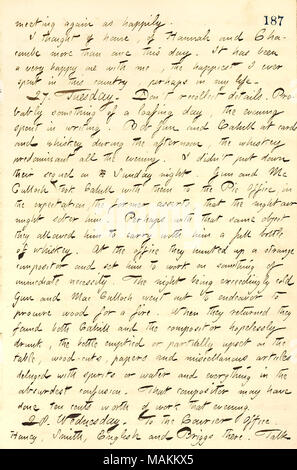 187
meeting again as happily.
I thought of home, of Hannah and Cha-
combe more than one this day. It has been
a very happy one with me the happiest I ever
spent in this country, perhaps in my life.
27. Tuesday. Don't recollect details. Pro-
bably something of a loafing day, the evening
spent in writing. Gun and Cahill at cards
and whiskey during the afternoon, the whiskey
predominant all the evening. I didn't put down
their sequel on Sunday night. Gun and Mac
Culloch took Cahill with them to the Pic Office in
the expectation the former asserts, that the night air
might sober him. Perhaps with that same object
they allowed him to carry with him a full bottle
of whiskey. At the office they hunted up a strange
compositor and set him to work on something of
immediate necessity. The night being exceedingly cold
Gun and Mac Culloch went out to endeavor to
procure wood for a fire. When they returned they
found both Cahill and the compositor hopelessly
drunk, the bottle emptied or partially upset on the
table, wood-cuts, papers and miscellaneous articles
deluged with spirits or water and everything in the
absurdest confusion. That compositor may have
done ten cents worth of work that evening.
28. Wednesday. To the Courier Office.
Haney, Smith, English and Briggs there. Talk
alamy
Image ID: MAKKX5
www.alamy.com